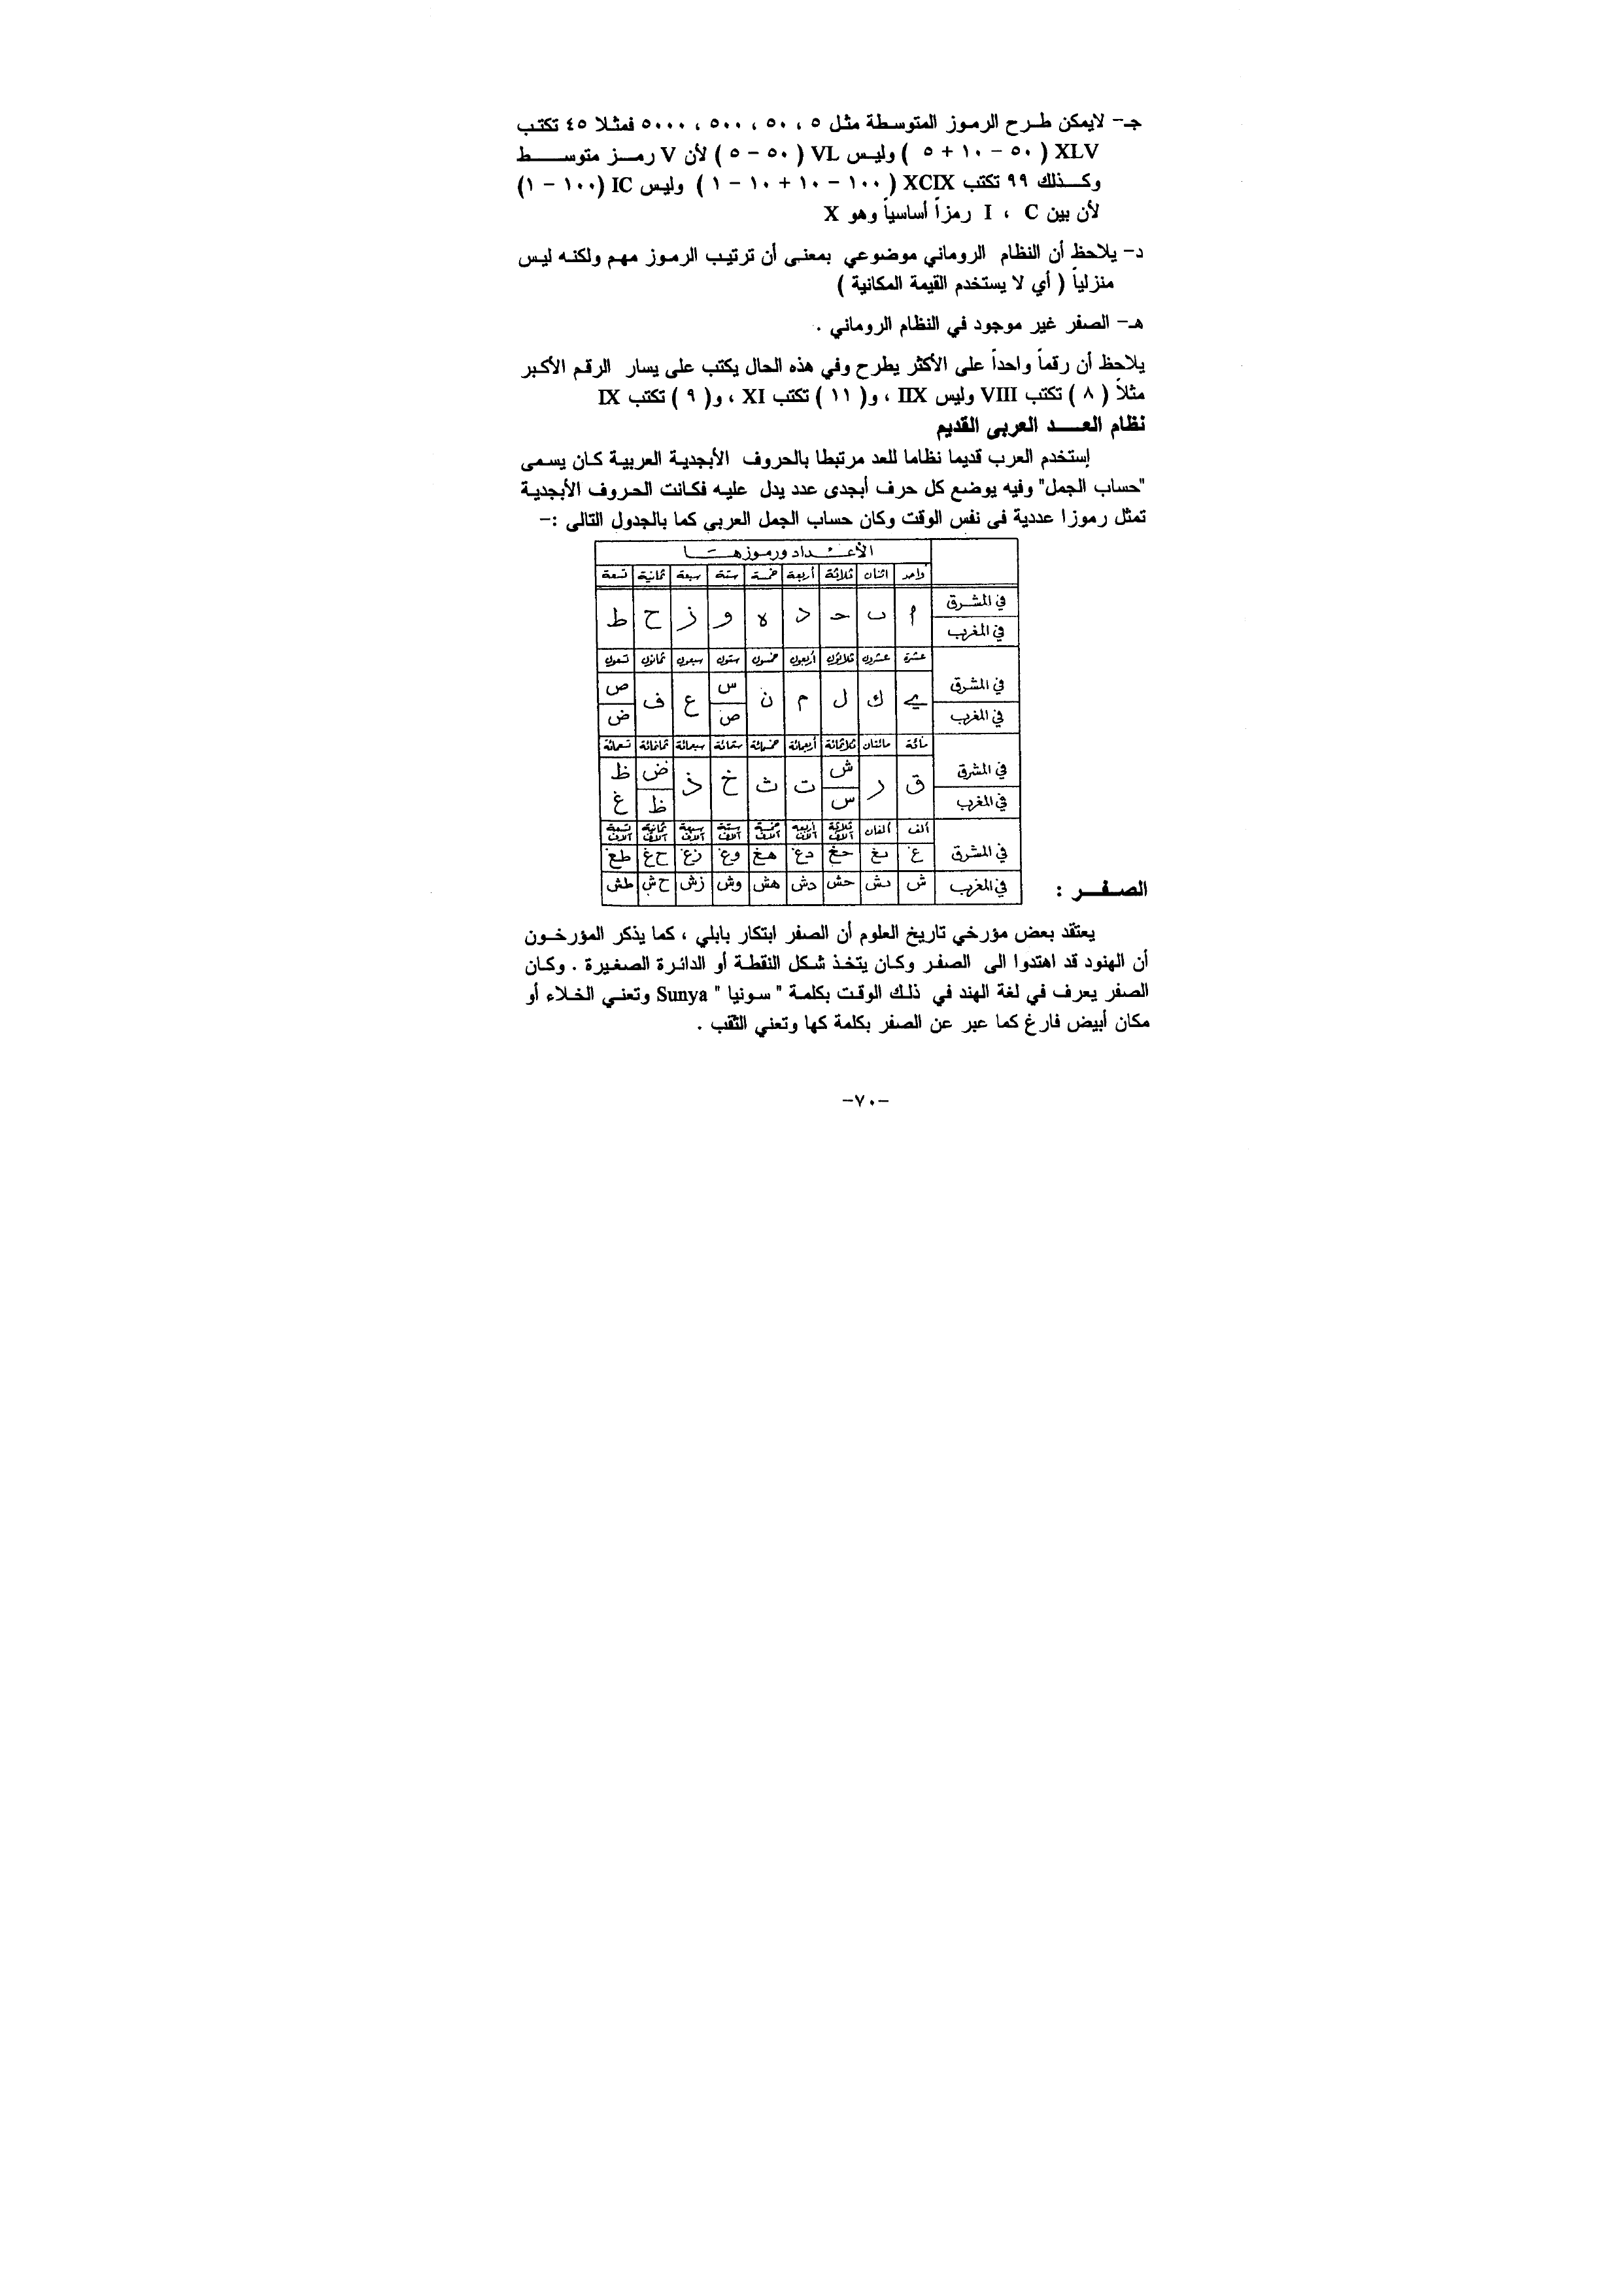 جـ- لايمكن طـرح الرمـوز المتوسـطة مثـل ٥ ، ٥٠ ، ٥٠٠ ، ٥٠٠٠ فمثـلا ٤٥ تكتـب
XLV ( ٥٠ - ١٠ + ٥ ) وليـس VL ( ٥٠ - ٥ ) لأن V رمـــز متوســــط
وكـــذلك ٩٩ تكتب XCIX ( ١٠٠ - ١٠ + ١٠ - ١ ) وليس IC (١٠٠ - ١)
لأن بين I ، C رمزاً أساسياً وهو X
د- يلاحظ أن النظام الروماني موضوعي بمعنـى أن ترتيـب الرمـوز مهـم ولكنـه ليـس
منزلياً ( أي لا يستخدم القيمة المكانية )
هـ- الصفر غير موجود في النظام الروماني .
يلاحظ أن رقماً واحداً على الأكثر يطرح وفي هذه الحال يكتب على يسار الرقـم الأكـبر
مثلاً ( ٨ ) تكتب VIII وليس IIX ، و( ١١ ) تكتب XI ، و( ٩ ) تكتب IX
نظام العــــد العربى القديم
إستخدم العرب قديما نظاما للعد مرتبطا بالحروف الأبجديـة العربيـة كـان يسـمى
"حساب الجمل" وفيه يوضع كل حرف أبجدى عدد يدل عليـه فكـانت الحـروف الأبجديـة
تمثل رموزا عددية فى نفس الوقت وكان حساب الجمل العربى كما بالجدول التالى :-
الأعـــداد ورموزهـــا
واحد اثنان ثلاثة أربعة خمسة ستة سبعة ثمانية تسعة
في المشرق
ا ب حـ د ه و ز ح ط
في المغرب
عشرة عشرون ثلاثون أربعون خمسون ستون سبعون ثمانون تسعون
في المشرق ي ك ل م ن س ع ف ص
في المغرب ص ض
مائة مائتان ثلاثمائة أربعمائة خمسمائة ستمائة سبعمائة ثمانمائة تسعمائة
في المشرق ق ر ش ت ث خ ذ ض ظ
في المغرب س ظ غ
ألف ألفان ثلاثة آلاف أربعة آلاف خمسة آلاف ستة آلاف سبعة آلاف ثمانية آلاف تسعة آلاف
في المشرق غ بغ حغ دغ هغ وغ زغ ح غ طغ
في المغرب ش بش حش دش هش وش زش ح ش طش
الصـفــــر :
يعتقد بعض مؤرخي تاريخ العلوم أن الصفر ابتكار بابلي ، كما يذكر المؤرخـون
أن الهنود قد اهتدوا الى الصفـر وكـان يتخـذ شـكل النقطـة أو الدائـرة الصغـيرة . وكـان
الصفر يعرف في لغة الهند في ذلـك الوقـت بكلمـة " سـونيا " Sunya وتعنـي الخـلاء أو
مكان أبيض فارغ كما عبر عن الصفر بكلمة كها وتعني الثقب .
-٧٠-